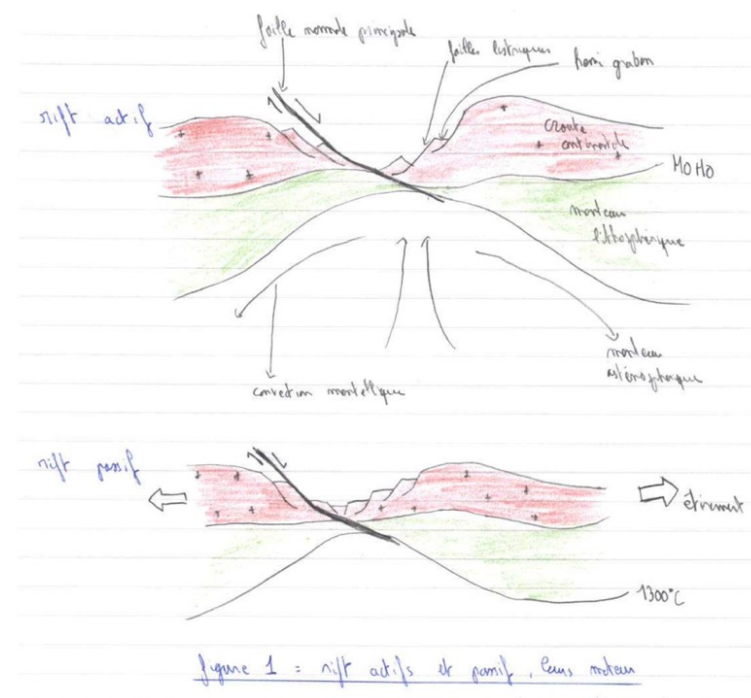 faille normale principale
failles listriques
hemi graben
rift actif
croute
continentale
MOHO
manteau
lithosphérique
manteau
asténospherique
convection mantellique
rift passif
étirement
1300°C
figure 1 = rift actifs et passif, leurs moteur